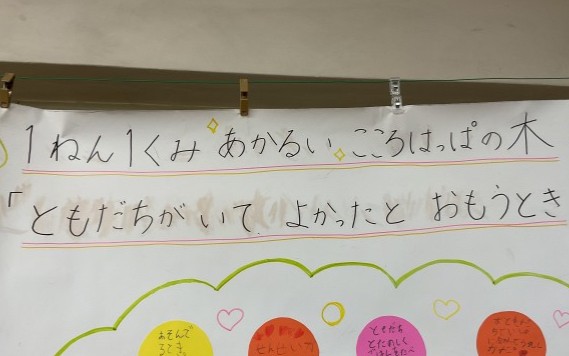 1ねん1くみ あかるい こころはっぱの木
「ともだちがいて よかったと おもうとき
あそんで
ともだち
とたのしく